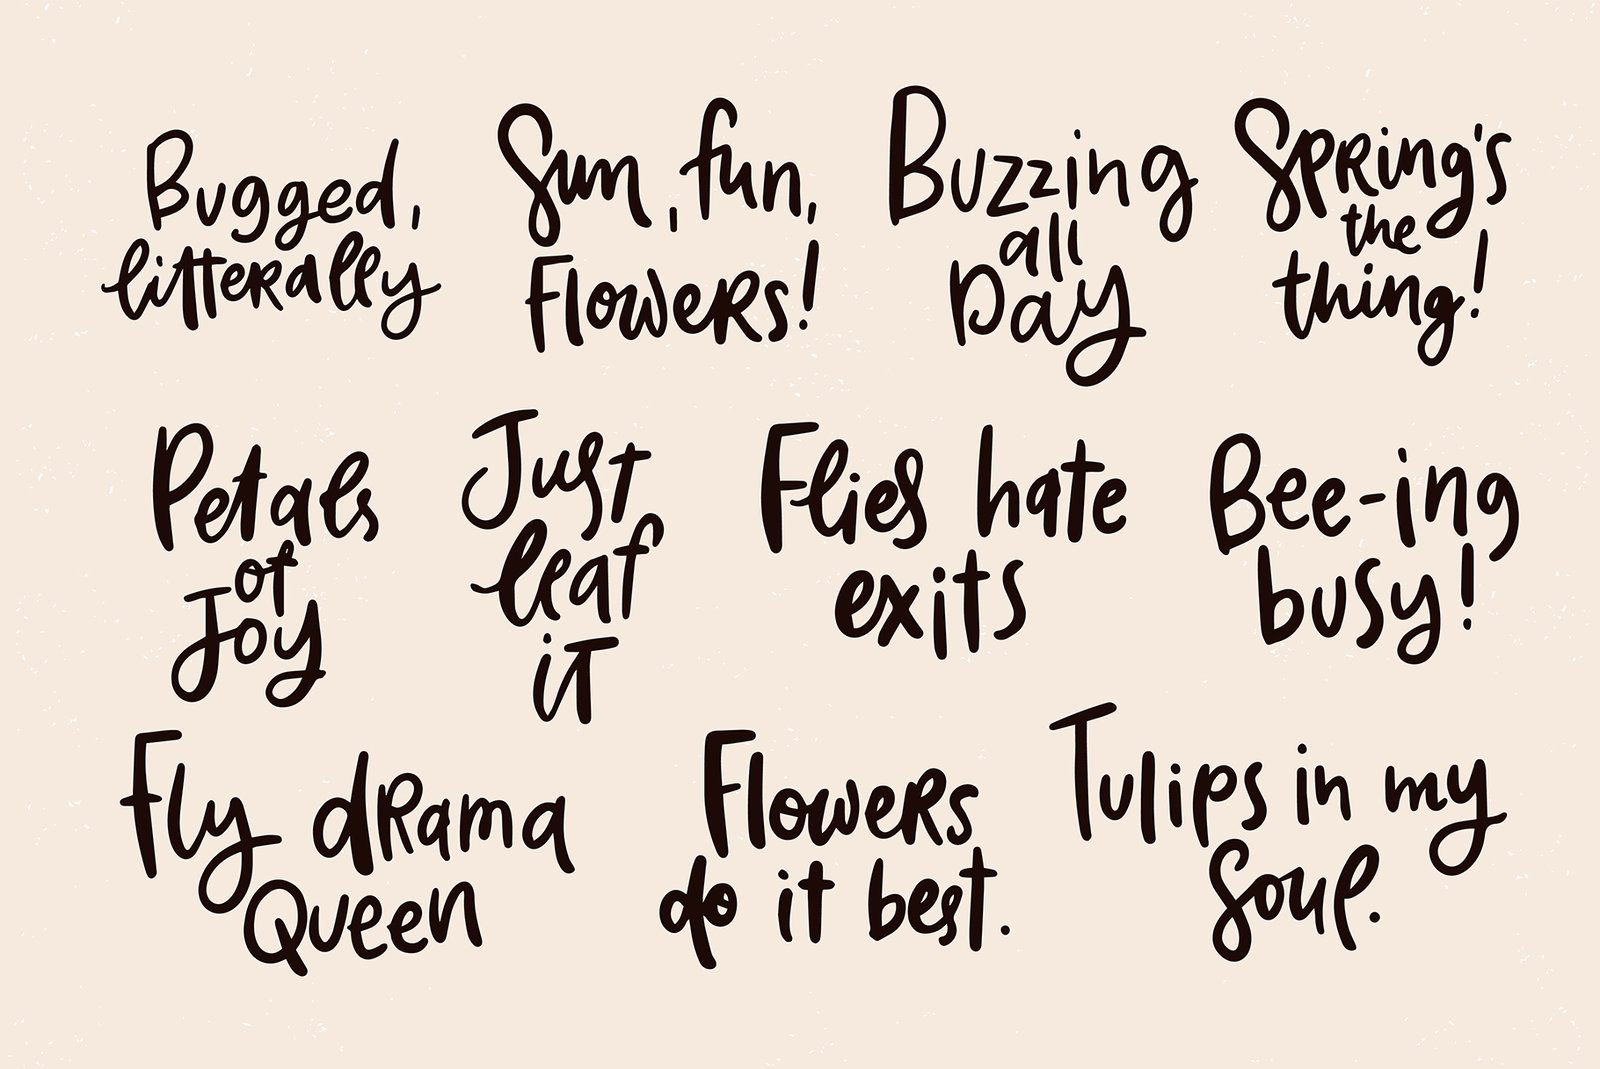 Bugged,
litterally
Sun, fun,
Flowers!
Buzzing
all
Day
Spring's
the
thing!
Petals
of
Joy
Just
leaf
it
Flies hate
exits
Bee-ing
busy!
Fly drama
Queen
Flowers
do it best.
Tulips in my
soul.